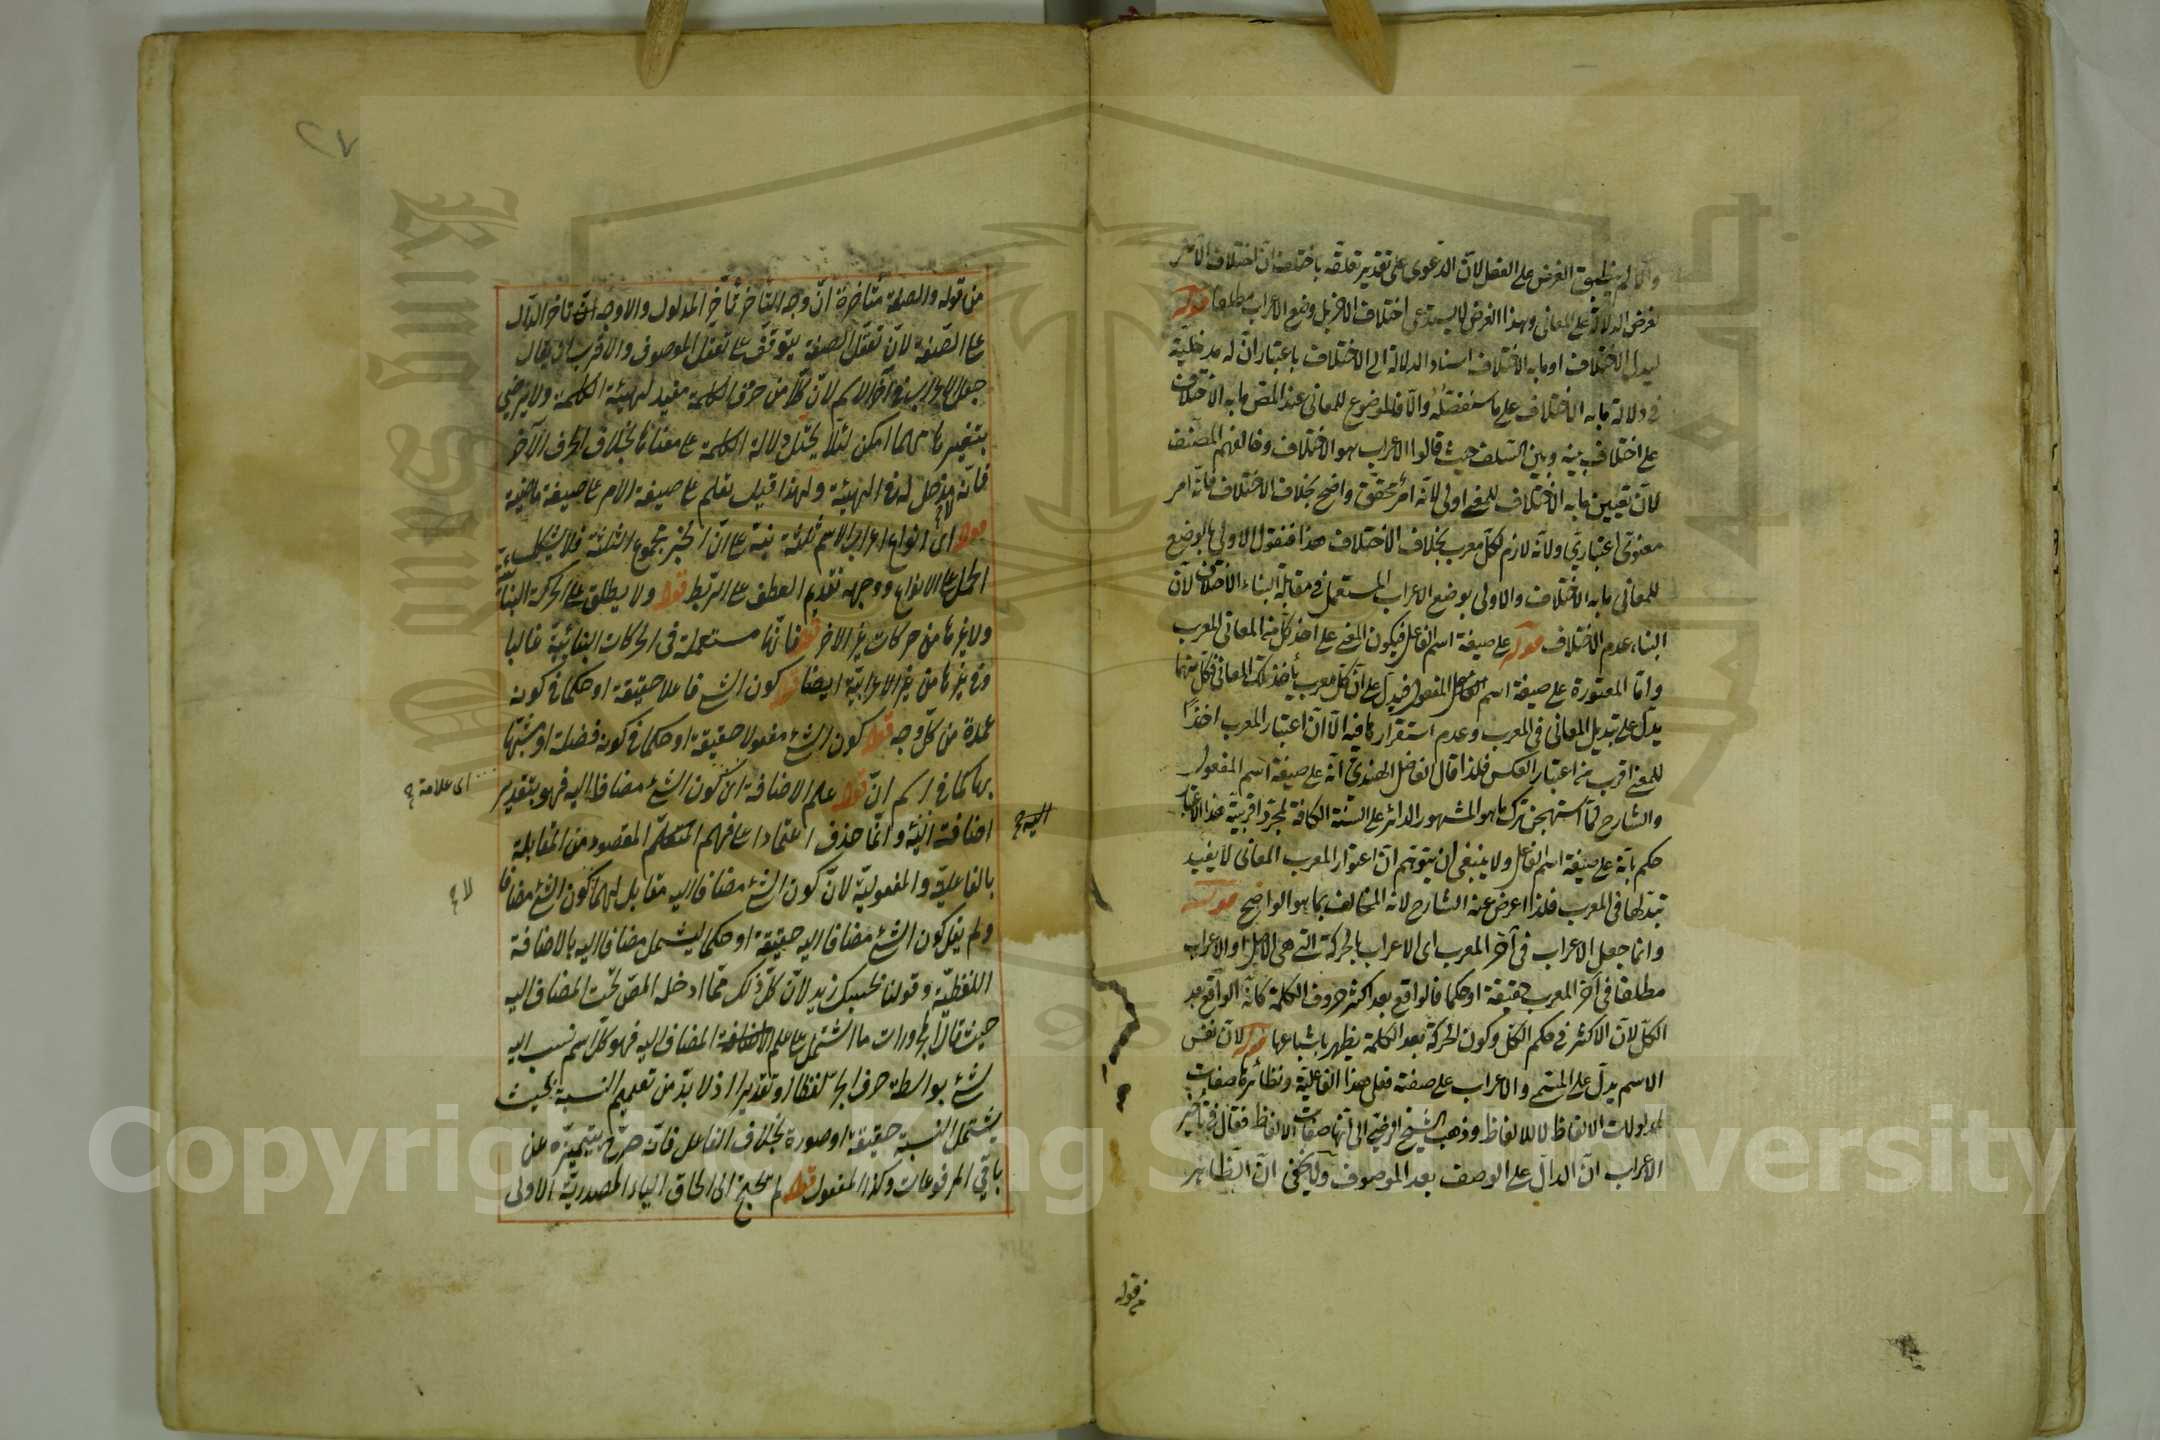 والا لم ينطبق الغرض على الفعل لان الدعوى على تقدير تعلقه باختلف ان اختلاف الآخر
لغرض الدلالة على المعانى وهذا الغرض لا يستدعى اختلاف الآخر بل وضع الاعراب مطلقا قوله
ليدل الاختلاف او ما به الاختلاف اسناد الدلالة الى الاختلاف باعتبار ان له مدخلية
فى دلالة ما به الاختلاف على ما ستفصله والا فالموضوع للمعانى عند المص ما به الاختلاف
على اختلاف بينه وبين السلف حيث قالوا الاعراب هو الاختلاف وخالفهم المصنف
لان تعيين ما به الاختلاف للمعنى اولى لانه امر محقق واضح بخلاف الاختلاف فانه امر
معنوى اعتبارى ولانه لازم لكل معرب بخلاف الاختلاف هذا فنقول الاولى بالوضع
للمعانى ما به الاختلاف والاولى بوضع الاعراب المستعمل فى مقابلة البناء الاختلاف لان
البناء عدم الاختلاف قوله على صيغة اسم الفاعل فيكون المعنى على اخذ كل من المعانى المعرب
واما المعتورة على صيغة اسم المفعول فيدل على ان كل معرب يأخذ تلك المعانى فكل منهما
يدل على تبديل المعانى فى المعرب وعدم استقرارها فيه الا ان اعتبار المعرب اخذا
للمعنى اقرب من اعتبار العكس فلذا قال الفاضل الهندى انه على صيغة اسم المفعول
والشارح لما استهجن ترك ما هو المشهور الدائر على السنة الكافة لمجرد اقربية هذا الاعتبار
حكم بانه على صيغة اسم الفاعل ولا ينبغى ان يتوهم ان اعتوار المعرب المعانى لا يفيد
تبدلها فى المعرب فلذا اعرض عنه الشارح لانه المخالف بما هو الواضح قوله
وانما جعل الاعراب فى آخر المعرب اى الاعراب بالحركة التى هى الاصل او الاعراب
مطلقا فى آخر المعرب حقيقة او حكما فالواقع بعد اكثر حروف الكلمة كانه الواقع بعد
الكل لان الاكثر فى حكم الكل وكون الحركة بعد الكلمة يظهر باشباعها قوله لان نفس
الاسم يدل على المسمى والاعراب على صفته فعلى هذا الفاعلية ونظائرها صفات
لمدلولات الالفاظ لا للالفاظ وذهب الشيخ الرضى الى انها صفات الالفاظ فقال فى تأخير
الاعراب ان الدال على الوصف بعد الموصوف ولا يخفى ان الظاهر
من قوله
٢٧
من قوله والصفة متأخرة ان وجه التأخر تأخر المدلول والاوجه ان تأخر الدال
على الصفة لان تعقل الصفة يتوقف على تعقل الموصوف والاقرب ان يقال
جعل الاعراب فى آخر الاسم لان كلا من حرف الكلمة مفيد لهيئة الكلمة ولا يرضى
بتغييرها مهما امكن لئلا يختل دلالة الكلمة على معناها بخلاف الحرف الآخر
فانه لا مدخل له فى الهيئة ولهذا قيل يعلم على صيغة الامر على صيغة ماضيه
قوله اى انواع اعراب الاسم ثلثة نبه على ان الخبر مجموع الثلثة فلا يشكل
الحمل على الانواع ووجهه تقدم العطف على الربط قوله ولا يطلق على الحركة البنائية
ولا غيرها من حركات غير الآخر قوله فانها مستعملة فى الحركات البنائية غالبا
وفى غيرها من غير الاعرابية ايضا قوله كون الشئ فاعلا حقيقة او حكما فى كونه
عمدة من كل وجه قوله كون الشئ مفعولا حقيقة او حكما فى كونه فضلة او شبها
بها كما فى اسم ان قوله علم الاضافة اى كون الشئ مضافا اليه فهو بتقدير
اى علامة ح
اضافة الشئ وانما حذف اعتمادا على فهم المتعلم المقصود من المقابلة
اليه ح
بالفاعلية والمفعولية لان كون الشئ مضافا اليه مقابل لهما كون الشئ مضافا
لا ح
ولم يقل كون الشئ مضافا اليه حقيقة او حكما ليشمل مضافا اليه بالاضافة
اللفظية وقولنا بحسبك زيد لان كل ذلك مما ادخله المص تحت المضاف اليه
حيث قال المجرورات ما اشتمل على علم المضاف اليه فهو كل اسم نسب اليه
شئ بواسطة حرف الجر لفظا او تقديرا اذ لا بد من تعميم النسبة بحيث
يشتمل النسبة حقيقة او صورة بخلاف الفاعل فانه صرح بتميزه عن
باقى المرفوعات وكذا المفعول قوله لم يحتج الى الحاق الياء المصدرية الاولى
Copyright © King Saud University
King Saud University
1957